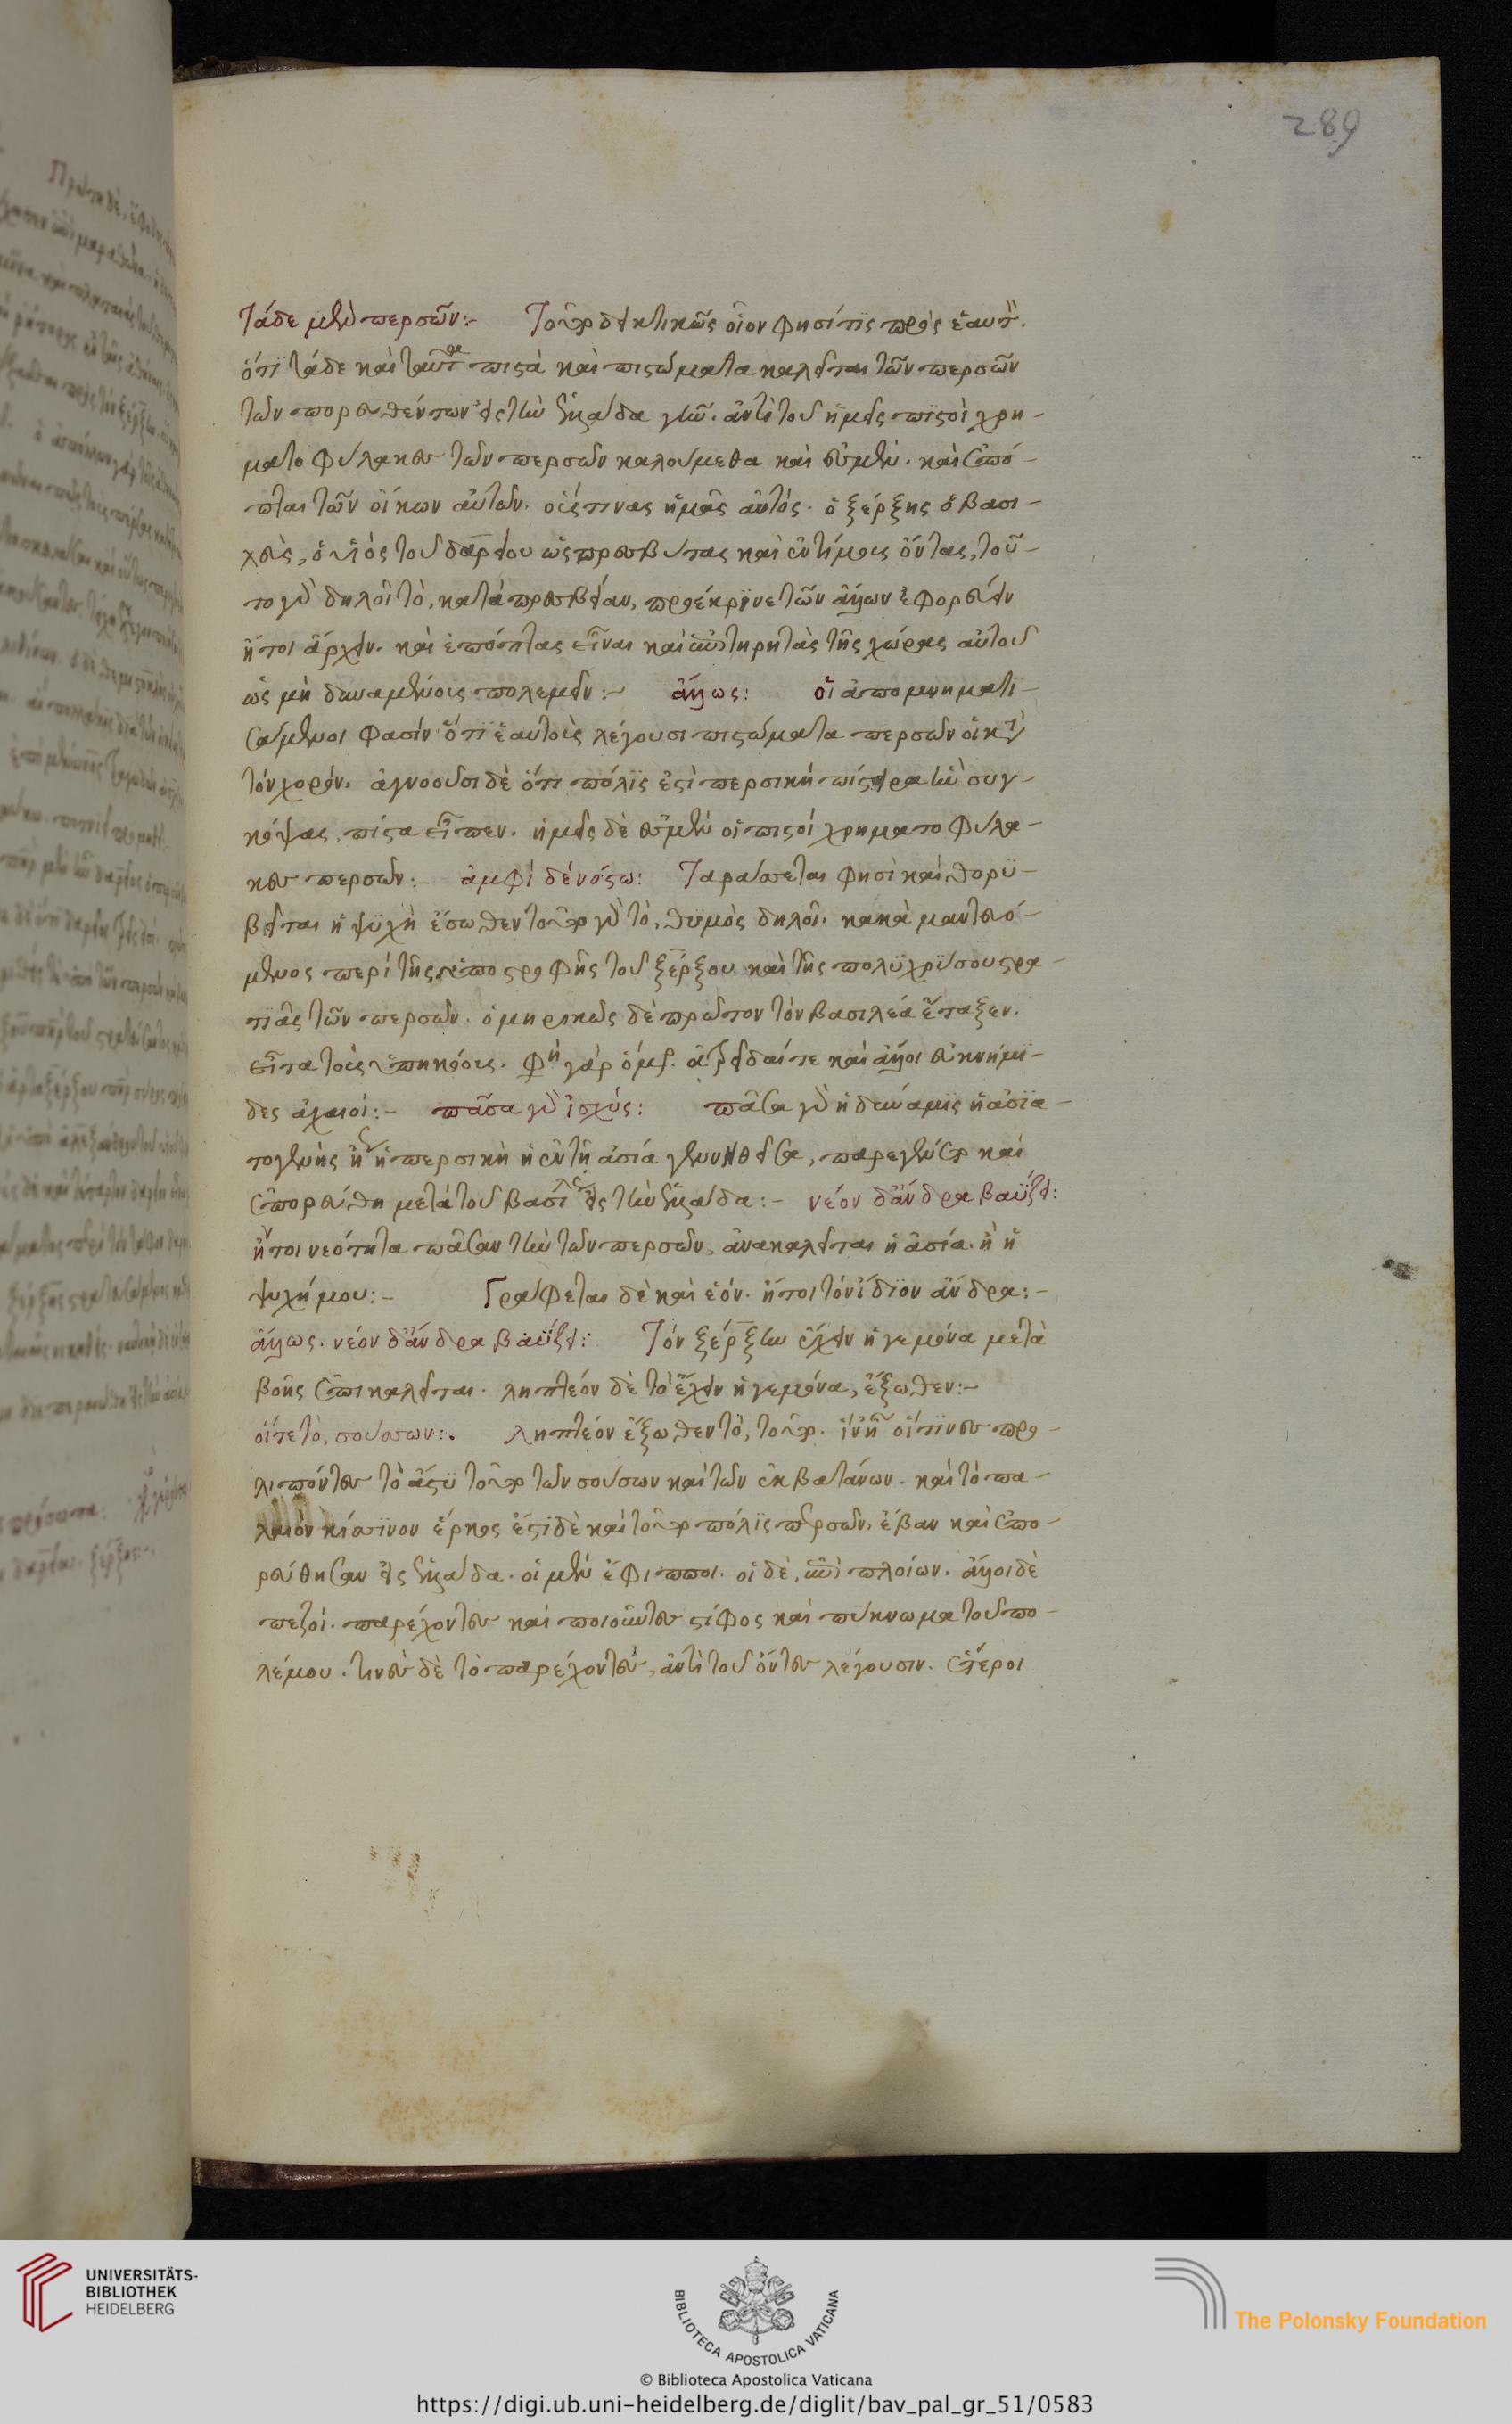 289
τάδε μὲν περσῶν:- Τουτο δεικτικῶς οἷον φησί τις πρὸς ἑαυτόν.
ὅτι τάδε καὶ ταῦτα πιστὰ καὶ πιστώματα καλεῖται τῶν περσῶν
τῶν πορευθέντων εἰς τὴν ἑλλάδα γῆν. ἀντὶ τοῦ ἡμεῖς πιστοὶ χρη-
ματοφύλακες τῶν περσῶν καλούμεθα καὶ ἐσμέν. καὶ ἐπό-
πται τῶν οἴκων αὐτῶν. οὕς τινας ἡμᾶς αὐτός. ὁ ξέρξης ὁ βασι-
λεὺς, ὁ υἱὸς τοῦ δαρείου ὡς πρεσβύτας καὶ ἐντίμους ὄντας, τοῦ-
το γὰρ δηλοῖ τὸ, κατὰ πρεσβείαν, προέκρινε τῶν ἄλλων ἐφορεύειν
ἤτοι ἄρχειν. καὶ ἐπόπτας εἶναι καὶ ἐπιτηρητὰς τῆς χώρας αὐτοῦ
ὡς μὴ δυναμένους πολεμεῖν:- ἄλλως: οἱ ἀπομνηματι-
σάμενοι φασὶν ὅτι ἑαυτοὺς λέγουσι πιστώματα περσῶν οἱ κατὰ
τὸν χορόν. ἀγνοοῦσι δὲ ὅτι πόλις ἐστὶ περσικὴ πίστειρα ἣν συγ-
κόψας, πίστα εἶπεν. ἡμεῖς δὲ ἐσμὲν οἱ πιστοί χρηματοφύλα-
κες περσῶν:- ἀμφὶ δὲ νόστω: Ταράσσεται φησὶ καὶ θορυ-
βεῖται ἡ ψυχὴ ἔσωθεν τοῦτο γὰρ τὸ, θυμὸς δηλοῖ. κακὰ μαντευό-
μενος περὶ τῆς ὑποστροφῆς τοῦ ξέρξου καὶ τῆς πολυχρύσου στρα-
τιᾶς τῶν περσῶν. ὁμηρικῶς δὲ πρῶτον τὸν βασιλέα ἔταξεν.
εἶτα τοὺς ὑπηκόους. φη γὰρ ὁμη. ἀτρεῖδαί τε καὶ ἄλλοι εὐκνήμι-
δες ἀχαιοί:- πᾶσα γὰρ ἰσχύς: πᾶσα γὰρ ἡ δύναμις ἡ ἀσια-
τογενὴς ἢ ἡ περσικὴ ἡ ἐν τῇ ἀσία γεννηθεῖσα, παρεγένετο καὶ
ἐπορεύθη μετὰ τοῦ βασιλέως εἰς τὴν ἑλλάδα:- νέον δ' ἄνδρα βαΰζει:
ἤτοι νεότητα πᾶσαν τὴν τῶν περσῶν. ἀνακαλεῖται ἡ ἀσία. ἢ ἡ
ψυχή μου:- Γράφεται δὲ καὶ ἑόν. ἤτοι τὸν ἴδιον ἄνδρα:-
ἄλλως. νέον δ' ἄνδρα βαΰζει: Τὸν ξέρξην ἔχειν ἡγεμόνα μετὰ
βοῆς ἐπικαλεῖται. ληπτέον δὲ τὸ ἔχειν ἡγεμόνα, ἔξωθεν:-
οἵτε τὸ, σούσων:. ληπτέον ἔξωθεν τὸ, τοῦτο. ἵν' ᾖ οἵτινες προ-
λιπόντες τὸ ἄστυ τοῦτο τῶν σούσων καὶ τῶν ἐκβατάνων. καὶ τὸ πα-
λαιὸν κίσσινον ἕρκος ἔστι δὲ καὶ τοῦτο πόλις περσῶν, ἔβαν καὶ ἐπο-
ρεύθησαν εἰς ἑλλάδα. οἱ μὲν ἔφιπποι. οἱ δὲ, ἐπὶ πλοίων. ἄλλοι δὲ
πεζοί. παρέχοντες καὶ ποιοῦντες στίφος καὶ πύκνωμα τοῦ πο-
λέμου. τινὲς δὲ τὸ παρέχοντες, ἀντὶ τοῦ ὄντες λέγουσιν. ἕτεροι
UNIVERSITÄTS-
BIBLIOTHEK
HEIDELBERG
BIBLIOTECA APOSTOLICA VATICANA
© Biblioteca Apostolica Vaticana
The Polonsky Foundation
https://digi.ub.uni-heidelberg.de/diglit/bav_pal_gr_51/0583